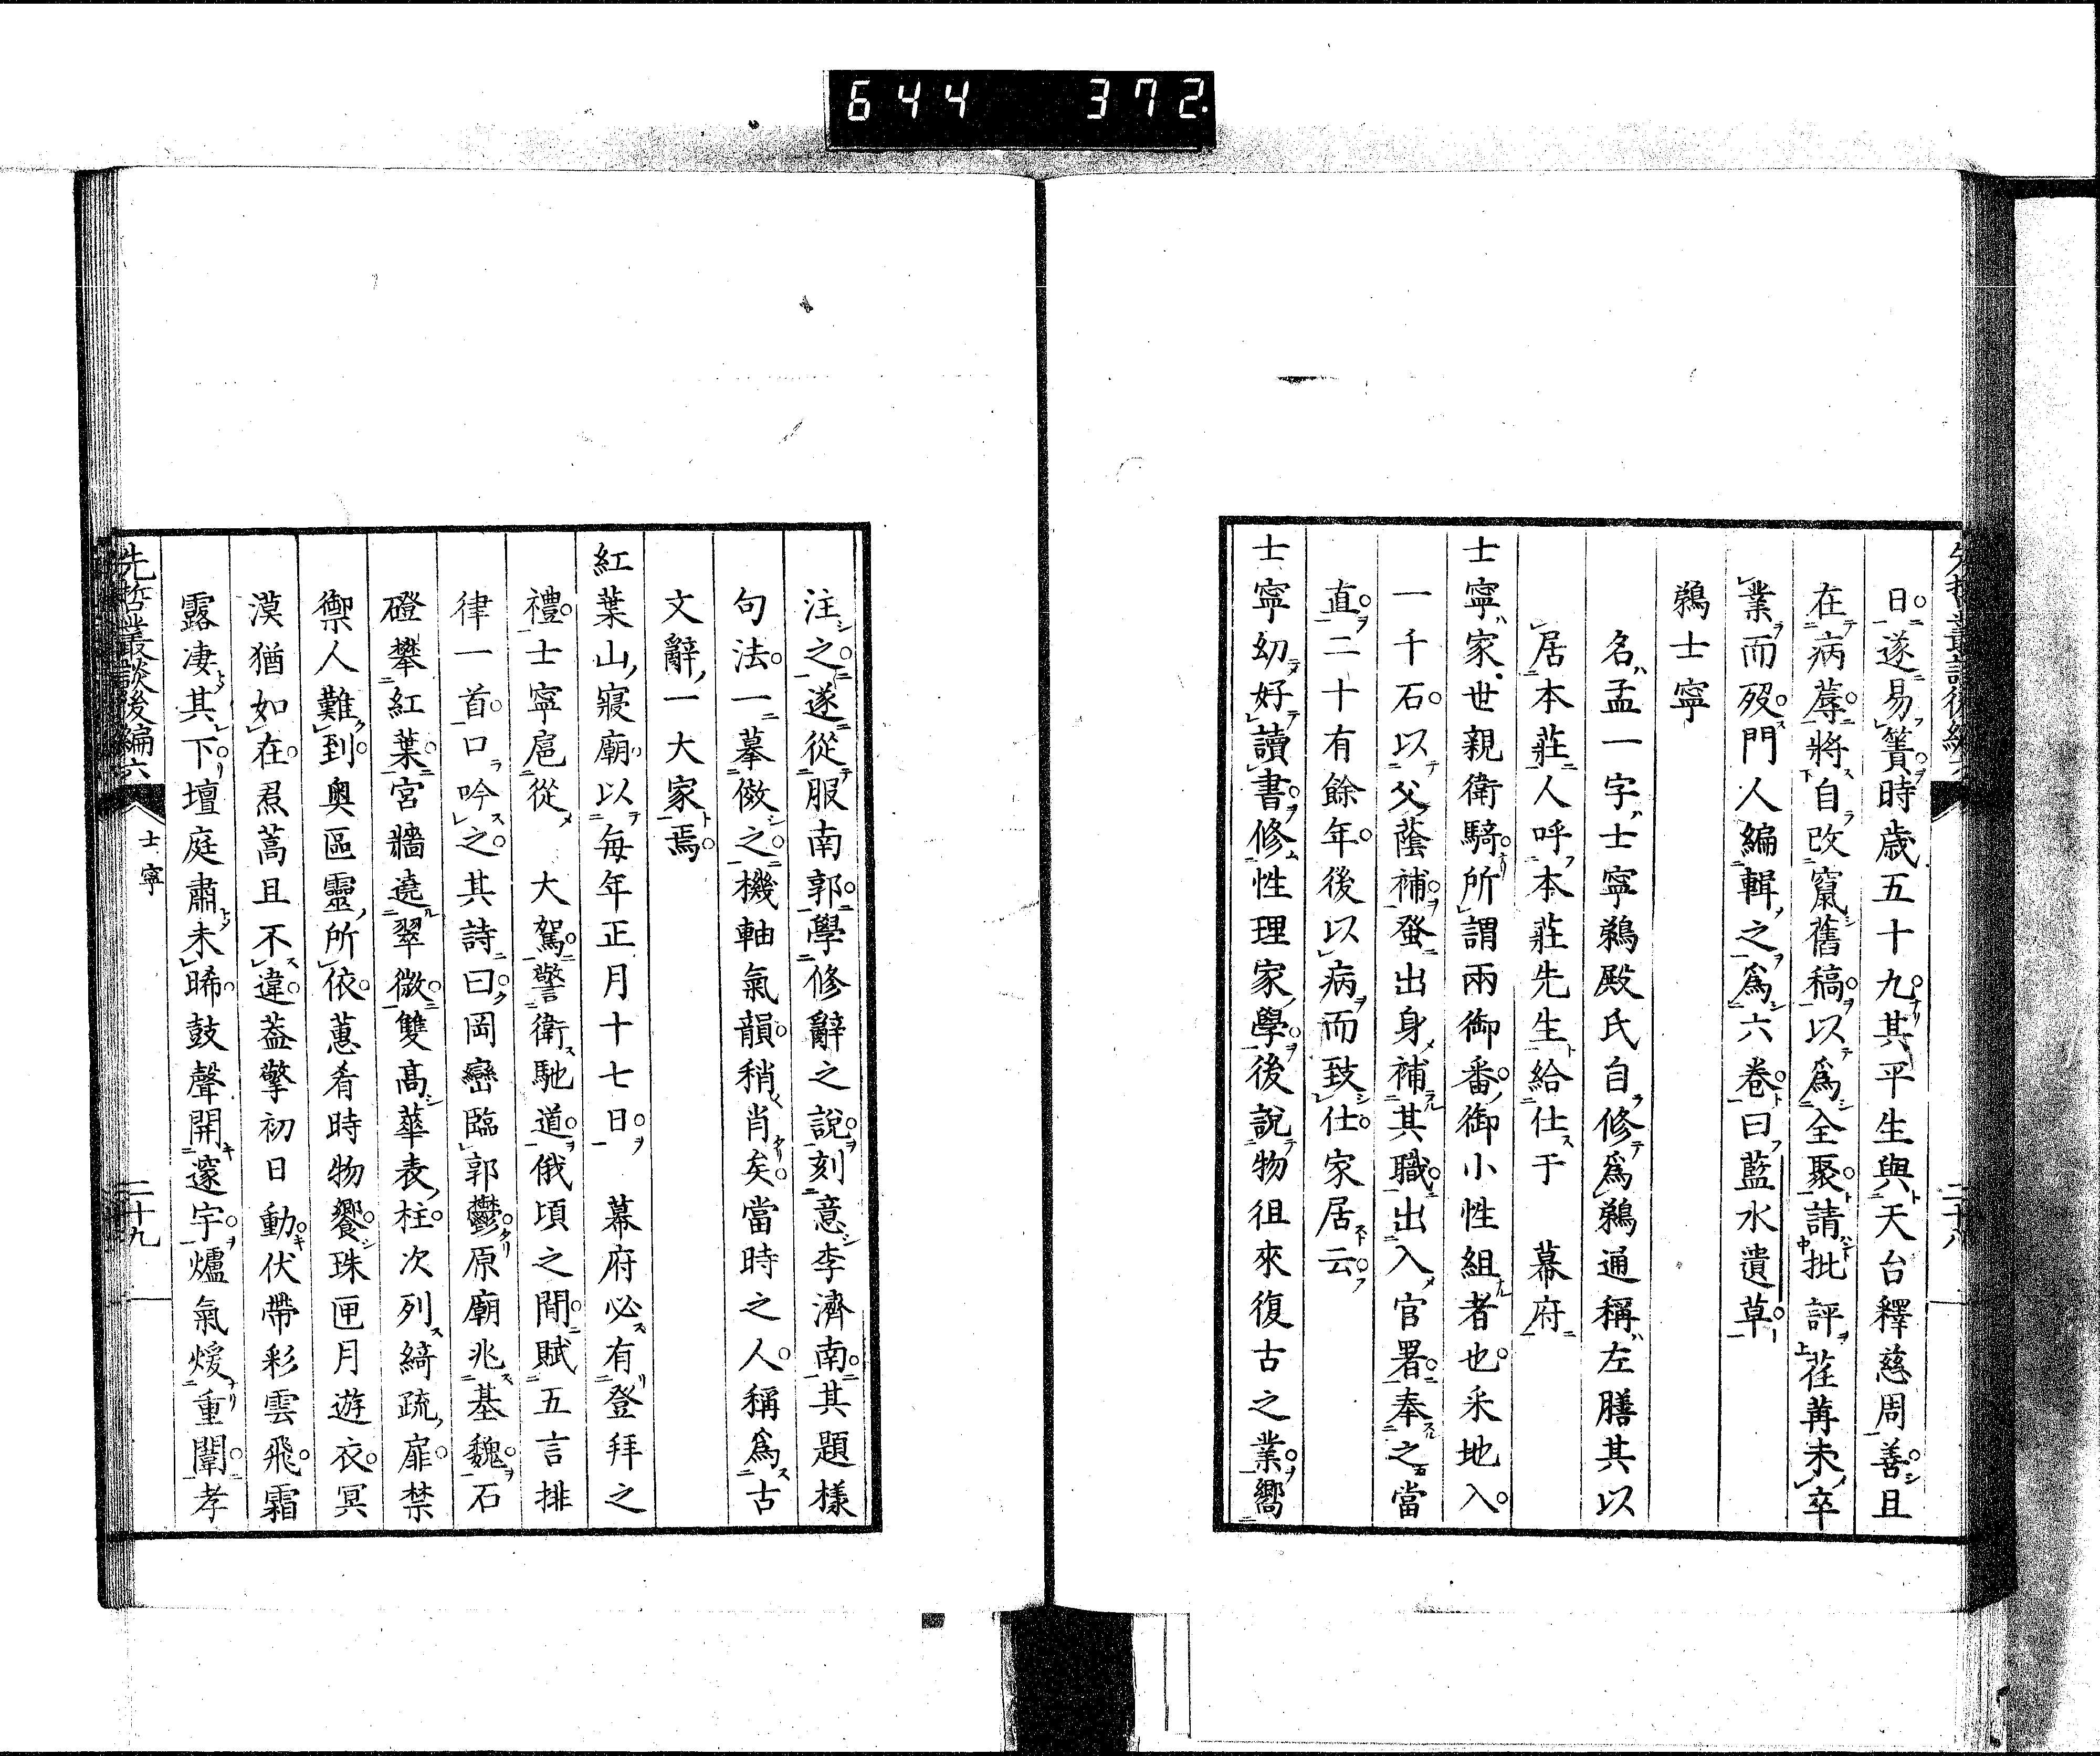 644 372
日遂易簀時歲五十九其平生與天台釋慈周善且
在病蓐將自改竄舊稿以爲全聚請批評荏苒未卒
業而歿門人編輯之爲六卷曰藍水遺草
鵜士寧
名孟一字士寧鵜殿氏自修爲鵜通稱左膳其以
居本莊人呼本莊先生給仕于 幕府
士寧家世親衛騎所謂兩御番御小性組者也釆地入
一千石以父蔭補蚤出身補其職出入官署奉之當
直二十有餘年後以病而致仕家居云
士寧幼好讀書修性理家學後說物徂來復古之業嚮
注之遂從服南郭學修辭之說刻意李濟南其題樣
句法一摹倣之機軸氣韻稍肖矣當時之人稱爲古
文辭一大家焉
紅葉山寢廟以每年正月十七日 幕府必有登拜之
禮士寧扈從 大駕警衛馳道俄頃之間賦五言排
律一首口吟之其詩曰岡巒臨郭鬱原廟兆基魏石
磴攀紅葉宮牆遶翠微雙高華表柱次列綺疏扉禁
禦人難到奧區靈所依蕙肴時物饗珠匣月遊衣冥
漠猶如在焄蒿且不違葢擎初日動伏帶彩雲飛霜
露凄其下壇庭肅未晞鼓聲開邃宇爐氣煖重闈孝
先哲叢談後編六 士寧 二十九